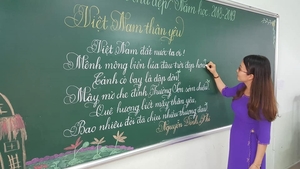 đẹp Năm học 2018-2019
Việt Nam thân yêu
Việt Nam đất nước ta ơi!
Mênh mông biển lúa đâu trời đẹp hơn
Cánh cò bay lả dập dờn
Mây mờ che đỉnh Trường Sơn sớm chiều
Quê hương biết mấy thân yêu,
Bao nhiêu đời đã chịu nhiều thương đau
Nguyễn Đình Thi